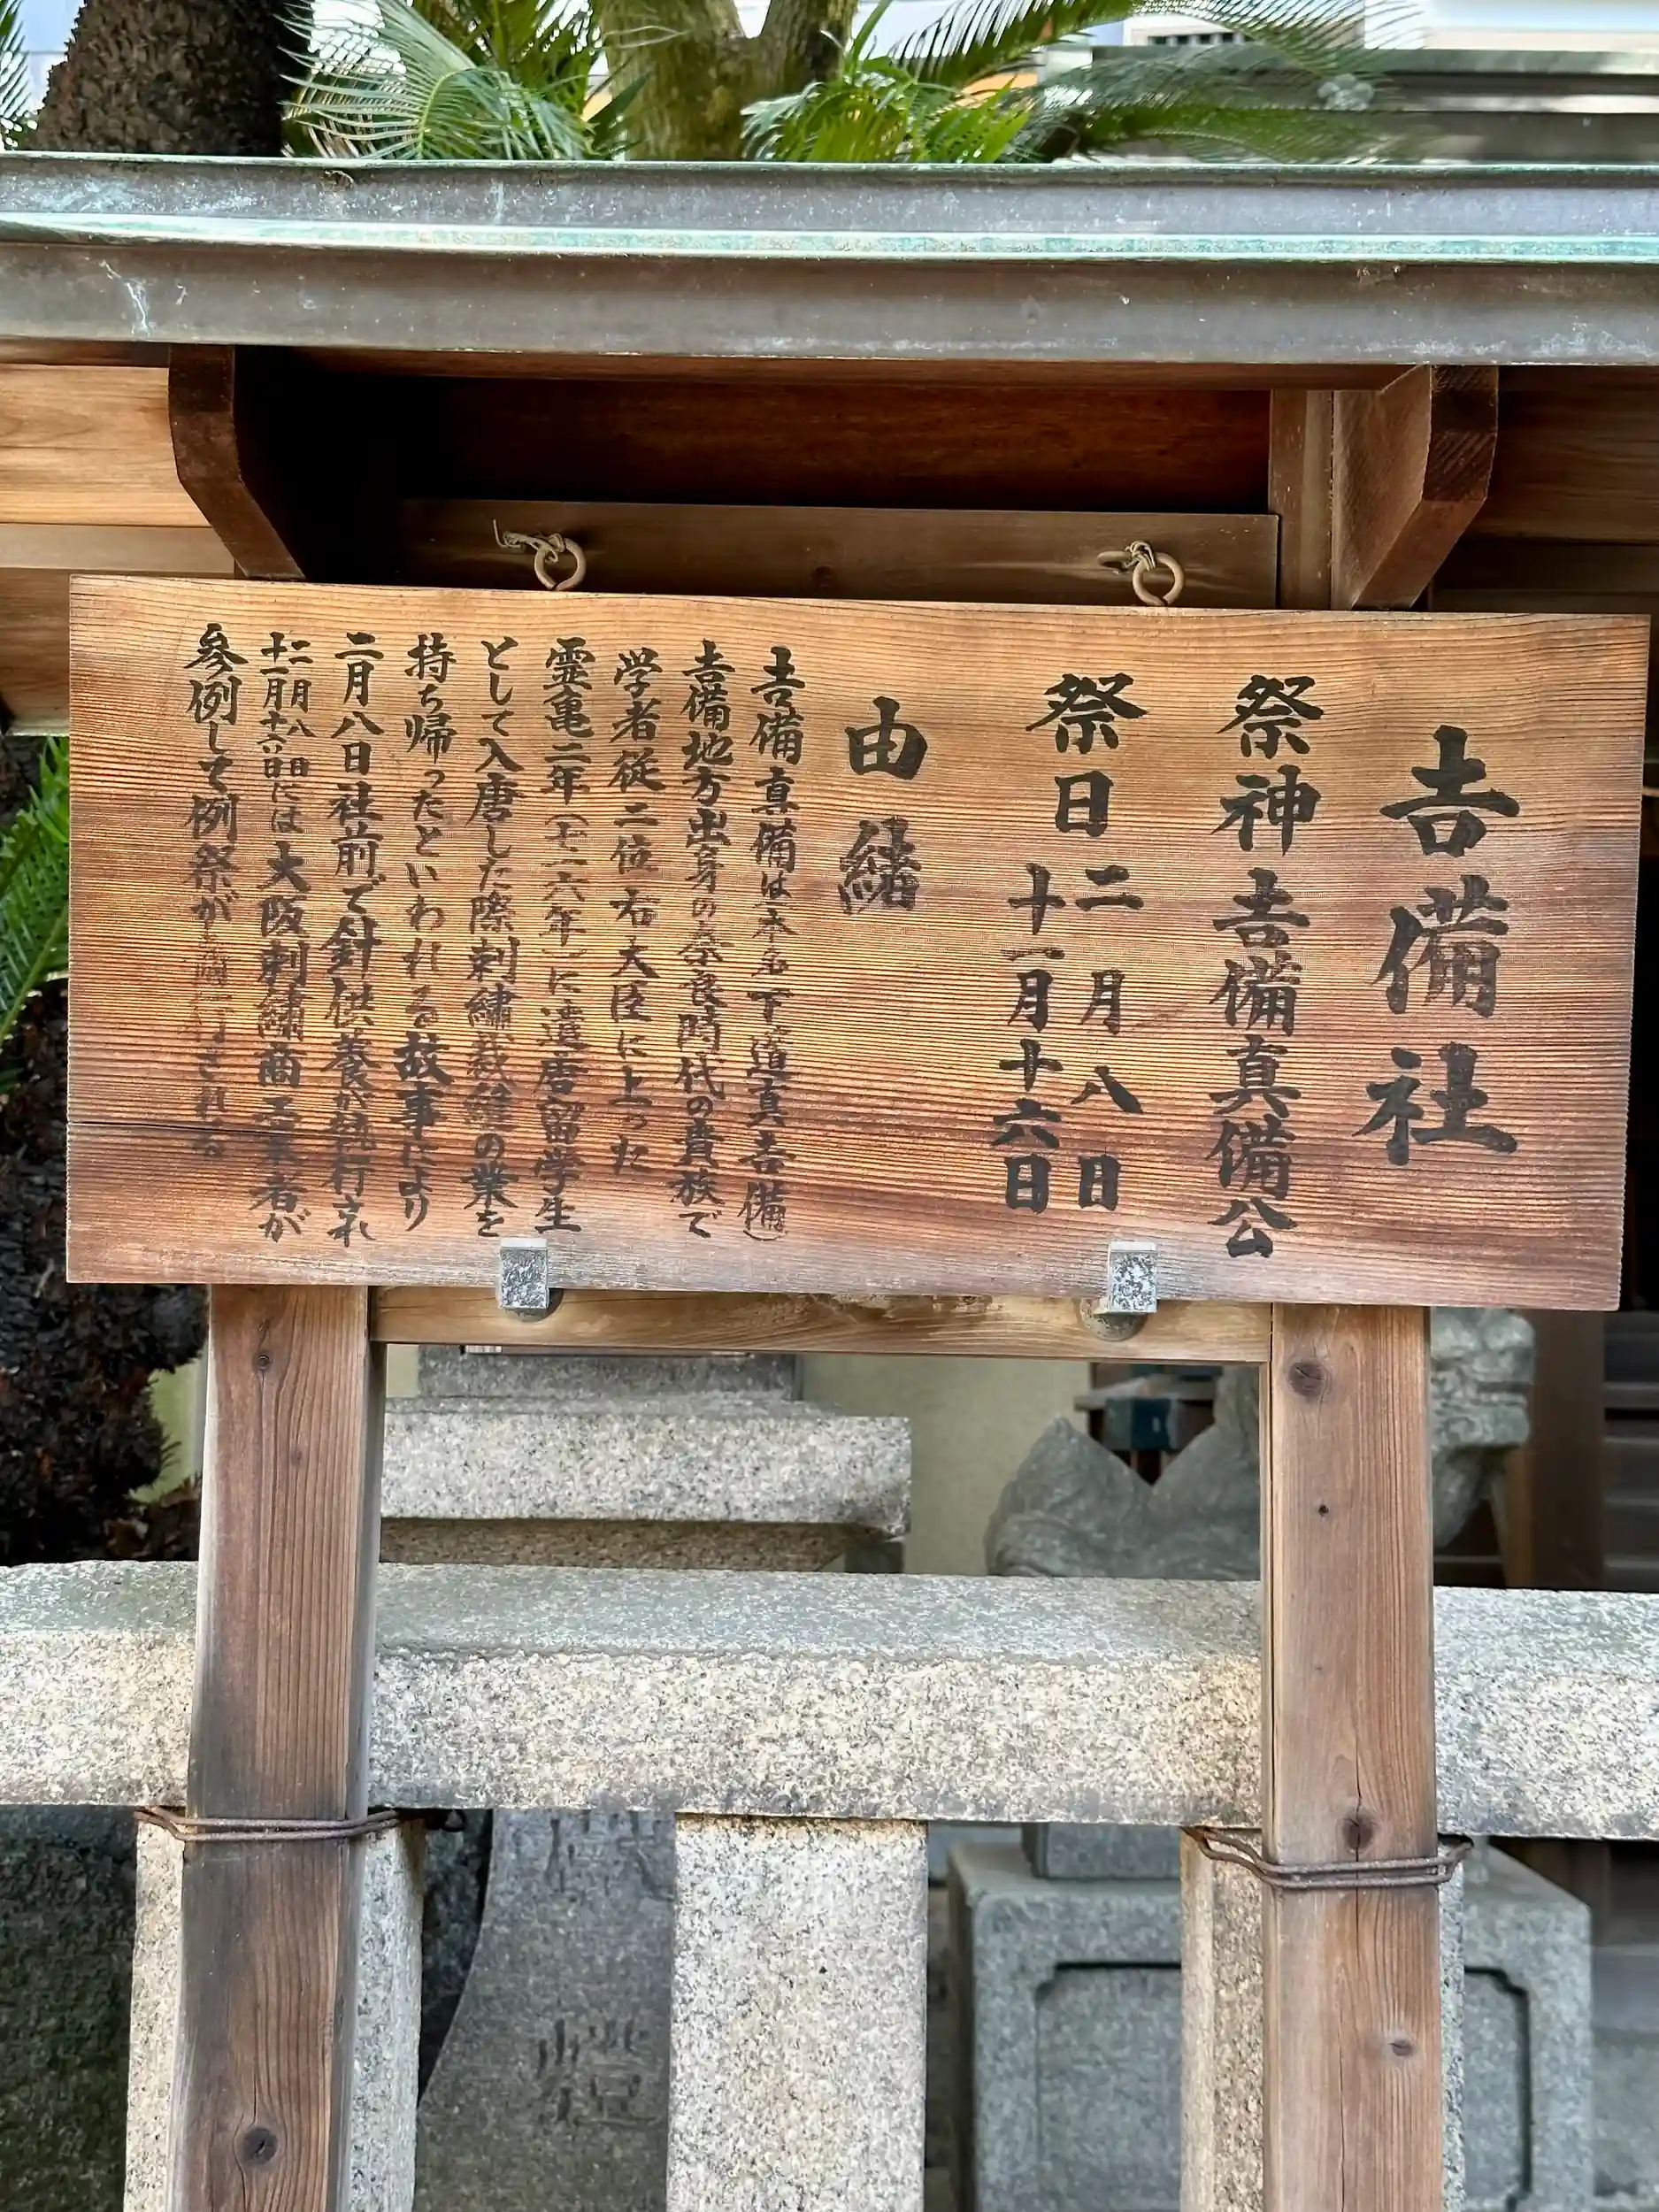 𠮷備社
祭神 𠮷備真備公
祭日 二月八日
十一月十六日
由緒
𠮷備真備は本名下道真𠮷備)
𠮷備地方出身の奈良時代の貴族で
学者従二位右大臣に上った
霊亀二年(七一六年)に遣唐留学生
として入唐した際刺繍裁縫の業を
持ち帰ったといわれる故事により
二月八日社前で針供養が執行され
十二月八日
十一月十六日には大阪刺繍商工業者が
参例して例祭が 行される